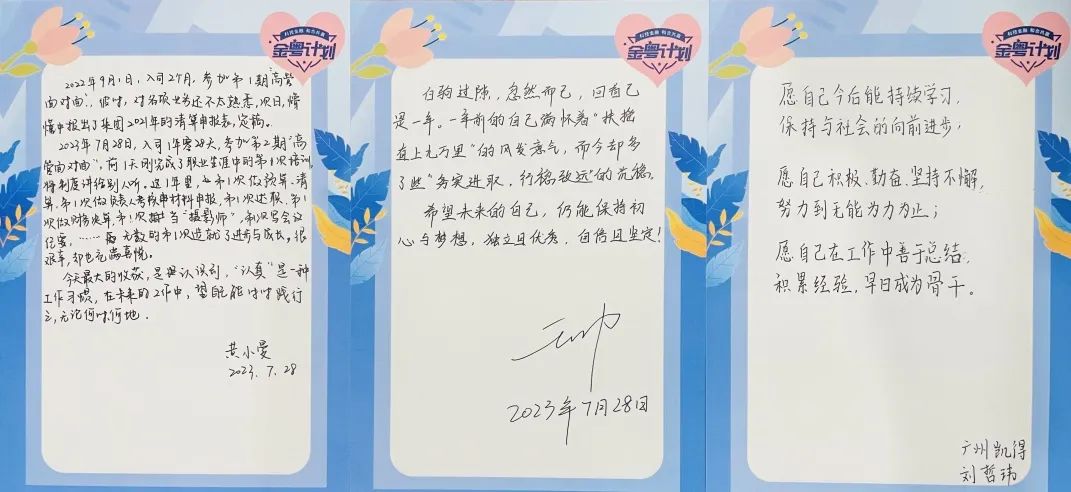 科技金融 和合共赢
金粤计划
2022年9月1日,入司2个月,参加第1期"高管
面对面",彼时,对各项业务还不太熟悉,次日,懵
懂中报出了集团2021年的清算申报表,定稿。
2023年7月28日,入司1年零28天,参加第2期"高
管面对面",前1天刚完成了职业生涯中的第1次培训,
将制度讲给别人听。这1年里,第1次做预算、清
算,第1次做材料申报,第1次述职,第1
次做财务决算,第1次担当"摄影师",第1次写会议
纪要,……无数的第1次造就了进步与成长。很
艰辛,却也充满喜悦。
今天最大的收获,是认识到,"认真"是一种
工作习惯,在未来的工作中,望自己能时时践行
之,无论何时何地.
黄小曼
2023.7.28
科技金融 和合共赢
金粤计划
白驹过隙,忽然而已,回首已
是一年。一年前的自己满怀着"扶摇
直上九万里"的风发意气,而今却多
了些"务实进取,行稳致远"的沉稳。
希望未来的自己,仍能保持初
心与梦想,独立且优秀,自信且坚定!
2023年7月28日
科技金融 和合共赢
金粤计划
愿自己今后能持续学习,
保持与社会的向前进步;
愿自己积极、勤奋、坚持不懈,
努力到无能为力为止;
愿自己在工作中善于总结,
积累经验,早日成为骨干。
广州凯得
刘哲玮